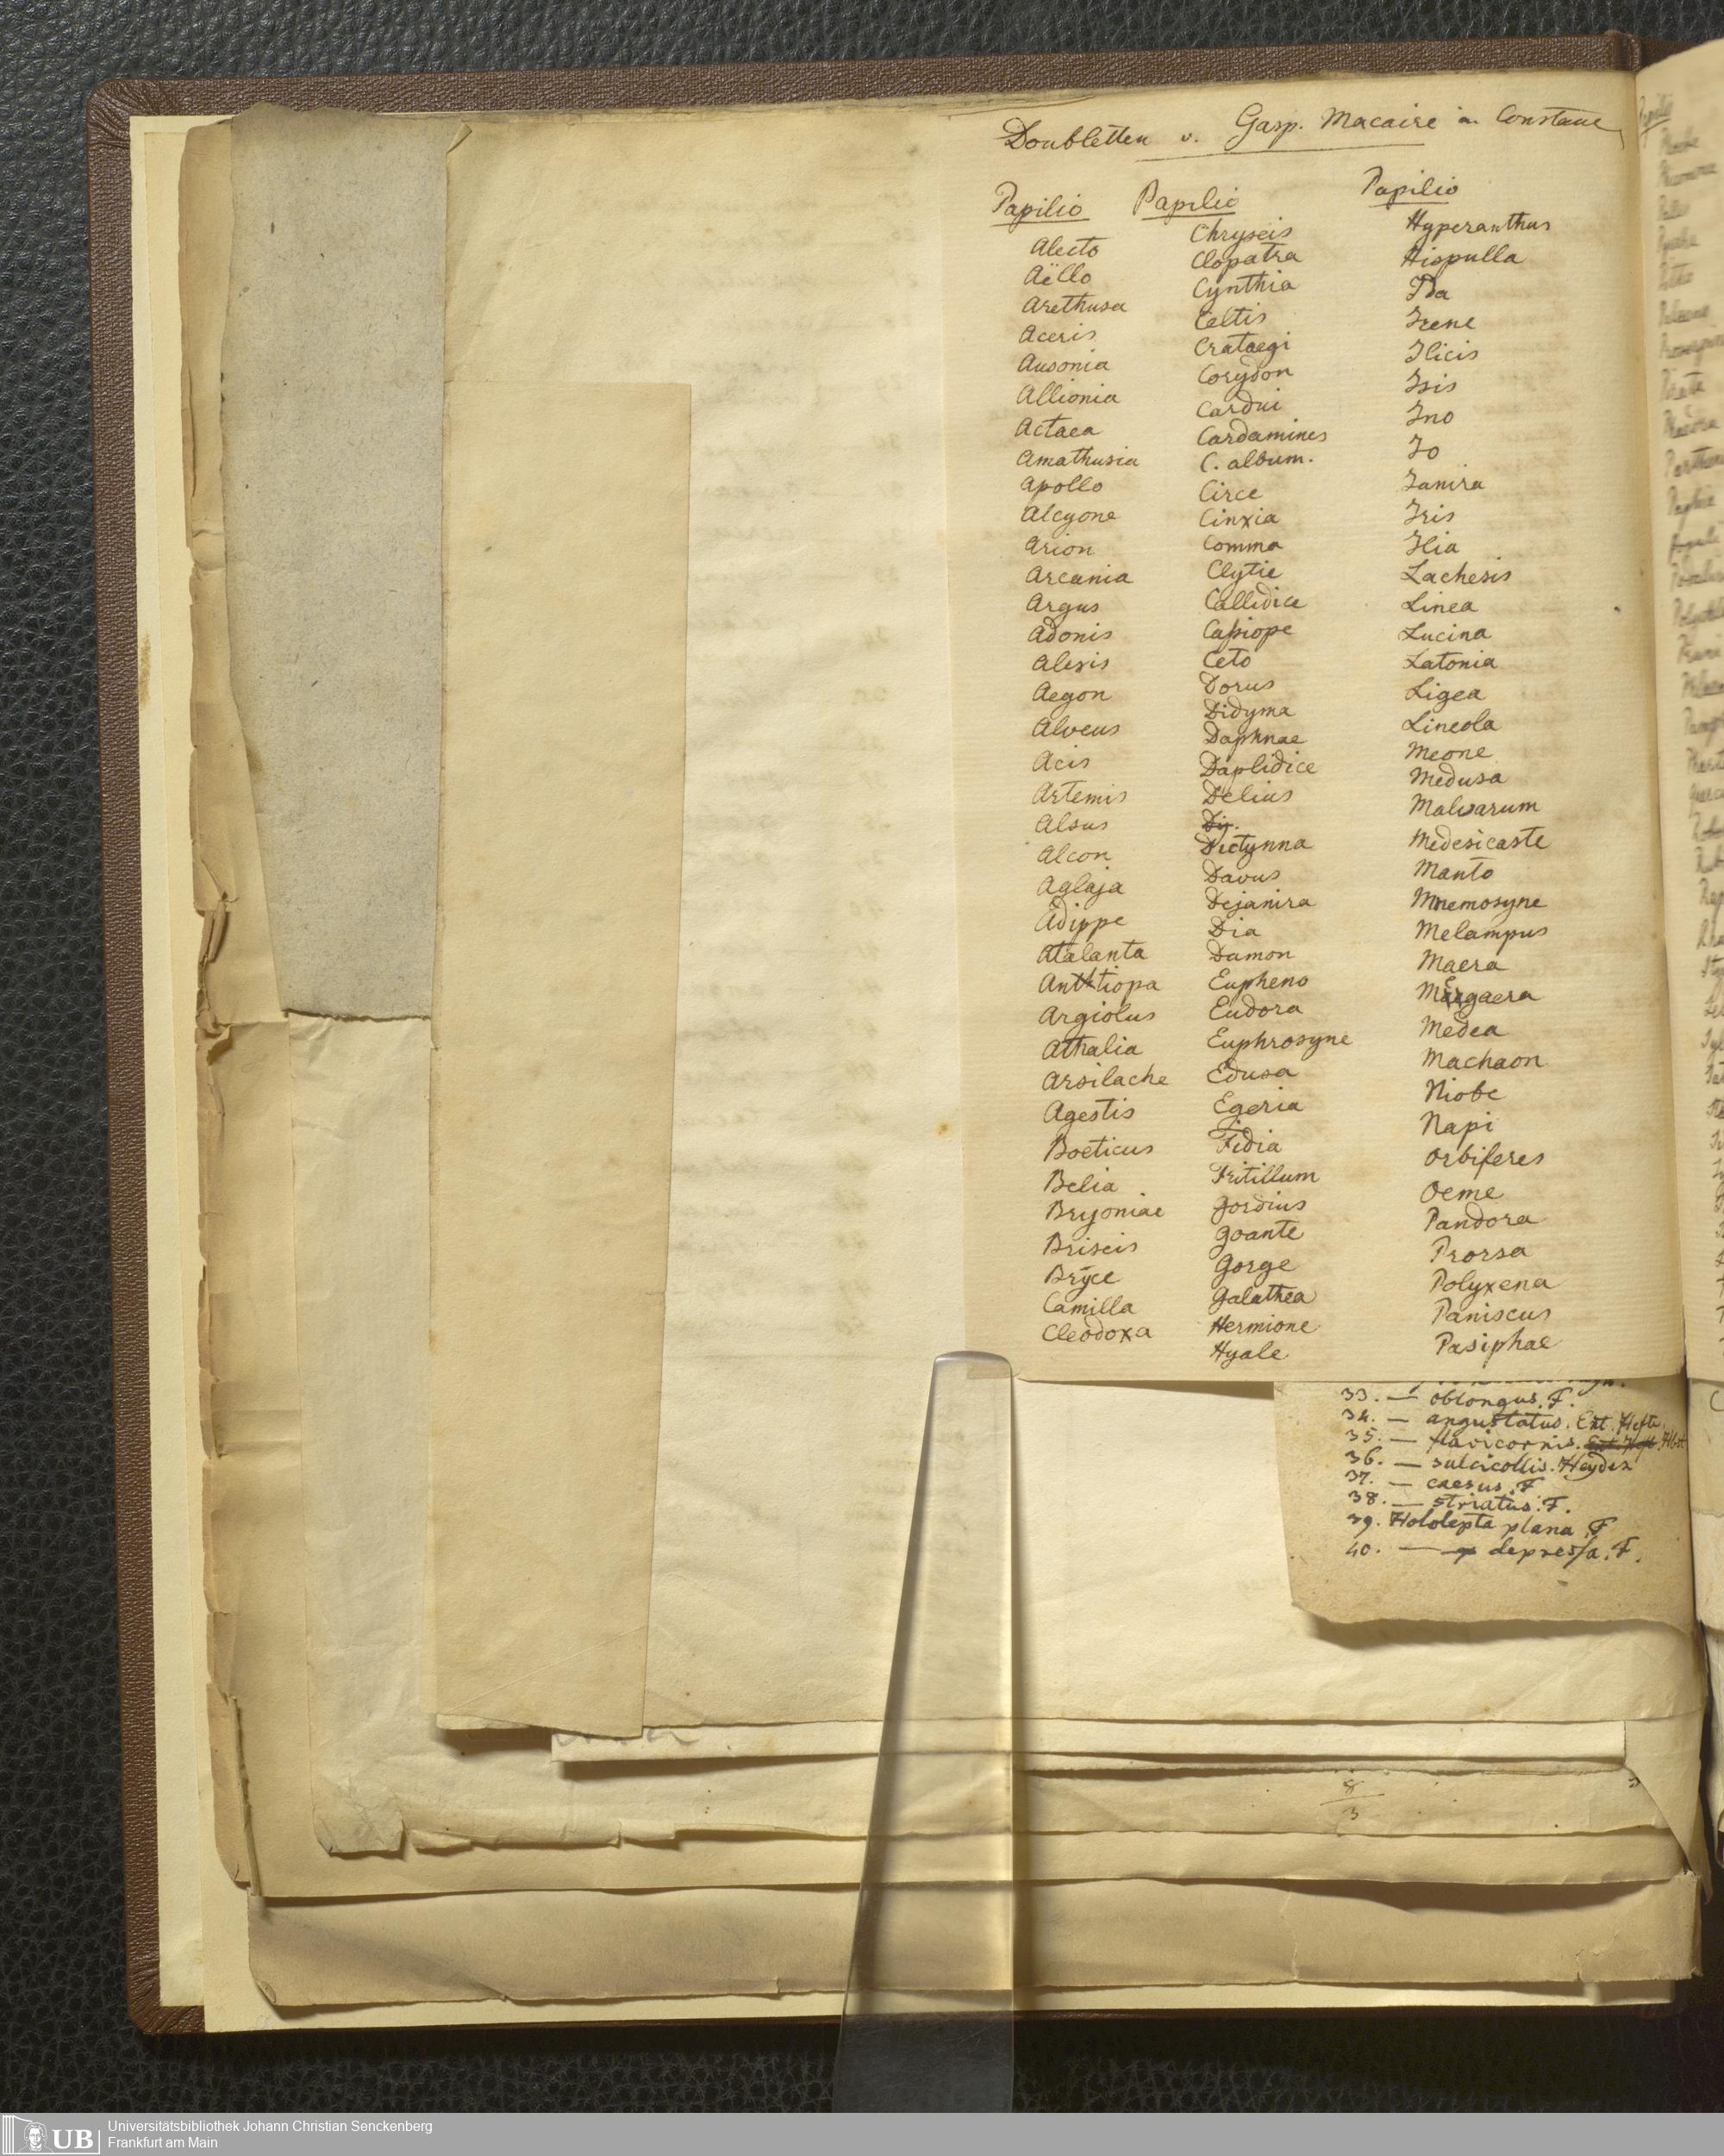 Doubletten v. Gasp. Macaire in Constanc
Papilio
Alecto
Aëllo
Arethusa
Aceris
Ausonia
Allionia
Actaea
Amathusia
Apollo
Alcyone
Arion
Arcania
Argus
Adonis
Alexis
Aegon
Alveus
Acis
Artemis
Alsus
Alcon
Aglaja
Adippe
Atalanta
Anttiopa
Argiolus
Athalia
Arsilache
Agestis
Boeticus
Belia
Bryoniae
Briseis
Bryce
Camilla
Cleodoxa
Papilio
Chryseis
Clopatra
Cynthia
Celtis
Crataegi
Corydon
Cardui
Cardamines
C. album.
Circe
Cinxia
Comma
Clytie
Callidice
Cassiope
Ceto
Dorus
Didyma
Daphnae
Daplidice
Delius
Dij.
Dictynna
Davus
Dejanira
Dia
Damon
Eupheno
Eudora
Euphrosyne
Edusa
Egeria
Fidia
Fritillum
Gordius
Goante
Gorge
Galathea
Hermione
Hyale
Papilio
Hyperanthus
Hispulla
Ida
Irene
Ilicis
Isis
Ino
Io
Ianira
Iris
Ilia
Lachesis
Linea
Lucina
Latonia
Ligea
Lineola
Meone
Medusa
Malvarum
Medesicaste
Manto
Mnemosyne
Melampus
Maera
Megaera
Medea
Machaon
Niobe
Napi
Orbiferes
Oeme
Pandora
Prorsa
Polyxena
Paniscus
Pasiphae
33. — oblongus. F.
34. — angustatus. Ent. Hefte
35. — flavicornis. Ent. Heft. Hbst
36. — sulcicollis. Heyden
37. — caesus. F
38. — striatus. F.
39. Hololepta plana F
40. — depressa. F.
8
3
UB
Universitätsbibliothek Johann Christian Senckenberg
Frankfurt am Main